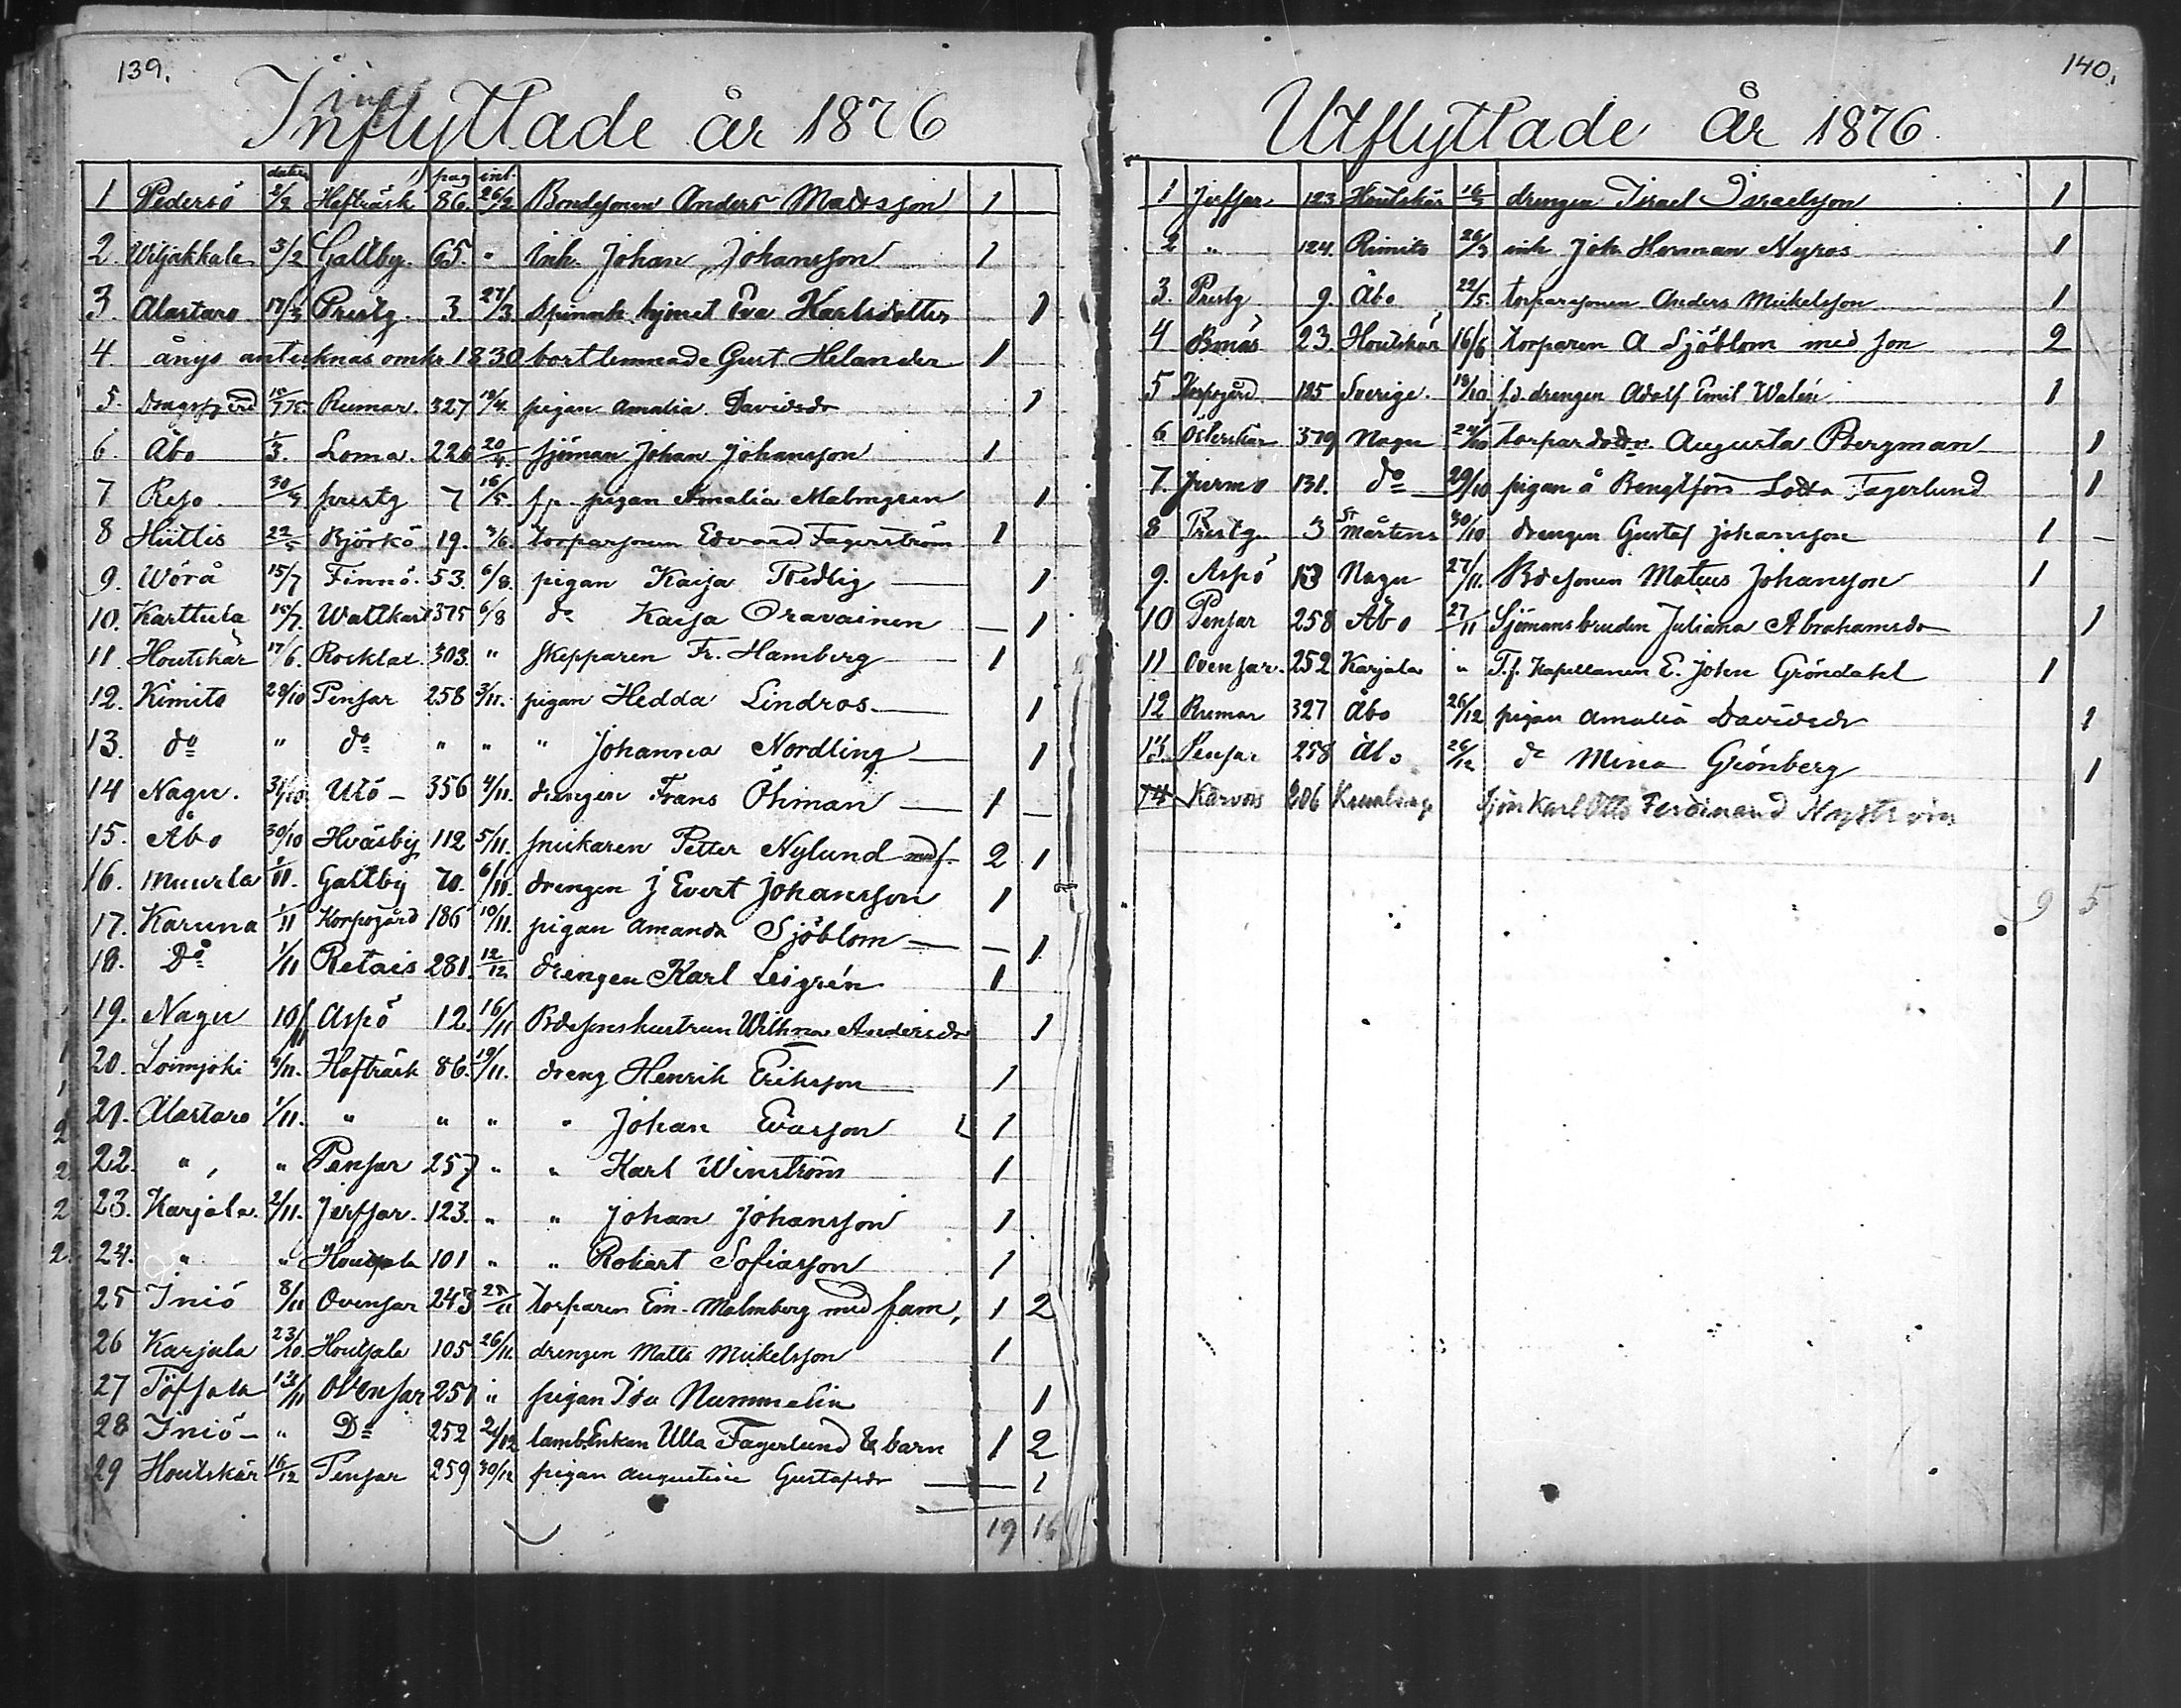 139.
Inflyttade år 1876
datum pag inl.
1 Pedersö 2/2 Hefträsk 86. 26/2 Bondesonen Anders Mattsson 1
2. Wiljakkala 3/2 Galtby 65. " Inh. Johan Johansson 1
3. Alastaro 17/3 Prestg. 3. 27/3 Spinnh. hjonet Eva Karlsdotter 1
4. ånyo antecknas omkr 1830 bortlemnade Gust Helander 1
5. Dragsfjerd Rumar. 327. 19/4. pigan Amalia Davidsdr 1
6. Åbo 1/3. Loma. 226 20/4. sjöman Johan Johansson 1
7 Reso 30/4 prestg 7 16/5 pigan Amalia Malmgren 1
8 Hiittis 22/5 Björkö 19. 4/6. torparsonen Edvard Fagerström 1
9. Wörå 15/7 Finnö. 53. 6/8. pigan Kaisa Redlig 1
10. Karttula 15/7. Wattkast 375 6/8 do Kaisa Oravainen 1
11. Houtskär 17/6. Rocklax. 303. " skepparen Fr. Hamberg 1
12. Kimito 28/10 Pensar 258 3/11. pigan Hedda Lindros 1
13. do " do " " " Johanna Nordling 1
14 Nagu. 31/10 Utö 356 4/11. drengen Frans Öhman 1
15. Åbo 30/10 Hväsby 112 5/11. snickaren Petter Nylund med f. 2 1
16. Muurla 1/11. Galtby 70. 6/11. drengen J Evert Johansson 1
17. Karuna 1/11 Korpogård 186 10/11. pigan Amanda Sjöblom 1
18. Do 1/11 Retais 281. 12/12 drengen Karl Leigrén 1
19. Nagu 10/11 Aspö 12. 16/11 Bdesonshustrun Wilhma Andersdr 1
20. Loimjoki 4/11. Hafträsk 86. 19/11. dreng Henrik Eriksson 1
21. Alastaro 1/11. " " " " Johan Evasson 1
22. " " Pensar 257 " " Karl Winström 1
23. Karjala. 2/11. Jerfsar. 123. " " Johan Johansson 1
24. " " Houtsala 101 " " Robert Sofiasson 1
25 Iniö 8/11 Ovensar 243 25/11 torparen Em. Malmberg med fam, 1 2
26 Karjala 23/10. Houtsala 105. 26/11. drengen Matts Mickelsson 1
27 Töfsala 13/11 Ovensar 251 " pigan Ida Nummelin 1
28 Iniö " Do 252 24/12 Enkan Ulla Fagerlund & barn 1 2
29 Houtskär 16/12 Pensar 259 30/12 pigan Augustina Gustafsdr 1
19 16
140.
Utflyttade År 1876.
1 Jerfsar 123 Houtskär 16/3 drengen Israel Israelsson 1
2 " 124. Rimito 26/3 inh Joh Herman Nyros 1
3. Prestg 9. Åbo 22/5. torparsonen Anders Mickelsson 1
4 Bonäs 23. Houtskär 16/6 torparen A Sjöblom med son 2
5 Korpogård 185 Sverige. 18/10 f.d. drengen Adolf Emil Walén 1
6 Österskär 379 Nagu 24/10 torpardodtr. Augusta Bergman 1
7. Jurmo 131. do 29/10 pigan å Bengtsfors Lotta Fagerlund 1
8 Prestg. 3 St Mårtens 30/10 drengen Gustaf Johansson 1
9. Aspö 13 Nagu 27/11. Bdesonen Mateus Johansson 1
10 Pensar 258 Åbo 27/11 Sjömansbruden Juliana Abrahamsdr 1
11 Ovensar. 252 Karjala " T.f. Kapellanen E. John Gröndahl 1
12 Rumar 327 Åbo 26/12 pigan Amalia Davidsdr 1
13. Pensar 258 Åbo 26/12 do Mina Grönberg 1
14 Kärvois 206 Kumlinge Sjön Karl Otto Ferdinand Nyström
9 5